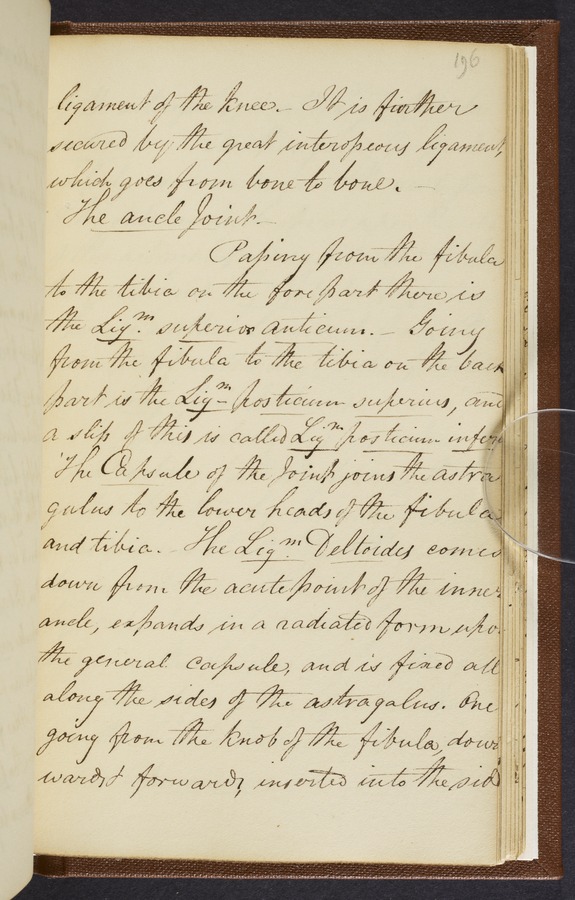 196
ligament of the knee. - It is further
secured by the great interosseous ligament,
which goes from bone to bone. -
The ancle Joint. -
Passing from the fibula
to the tibia on the fore part there is
the Ligm. superior anticum. - Going
from the fibula to the tibia on the back
part is the Ligm posticum superius, and
a slip of this is called Ligm posticum infer
The Capsule of the Joint joins the astra
gulus to the lower heads of the fibula
and tibia. - The Ligm. Deltoides comes
down from the acute point of the inner
ancle, expands in a radiated form upo
the general capsule, and is fixed all
along the sides of the astragalus. One
going from the knob of the fibula, down
wards & forwards, inserted into the sid